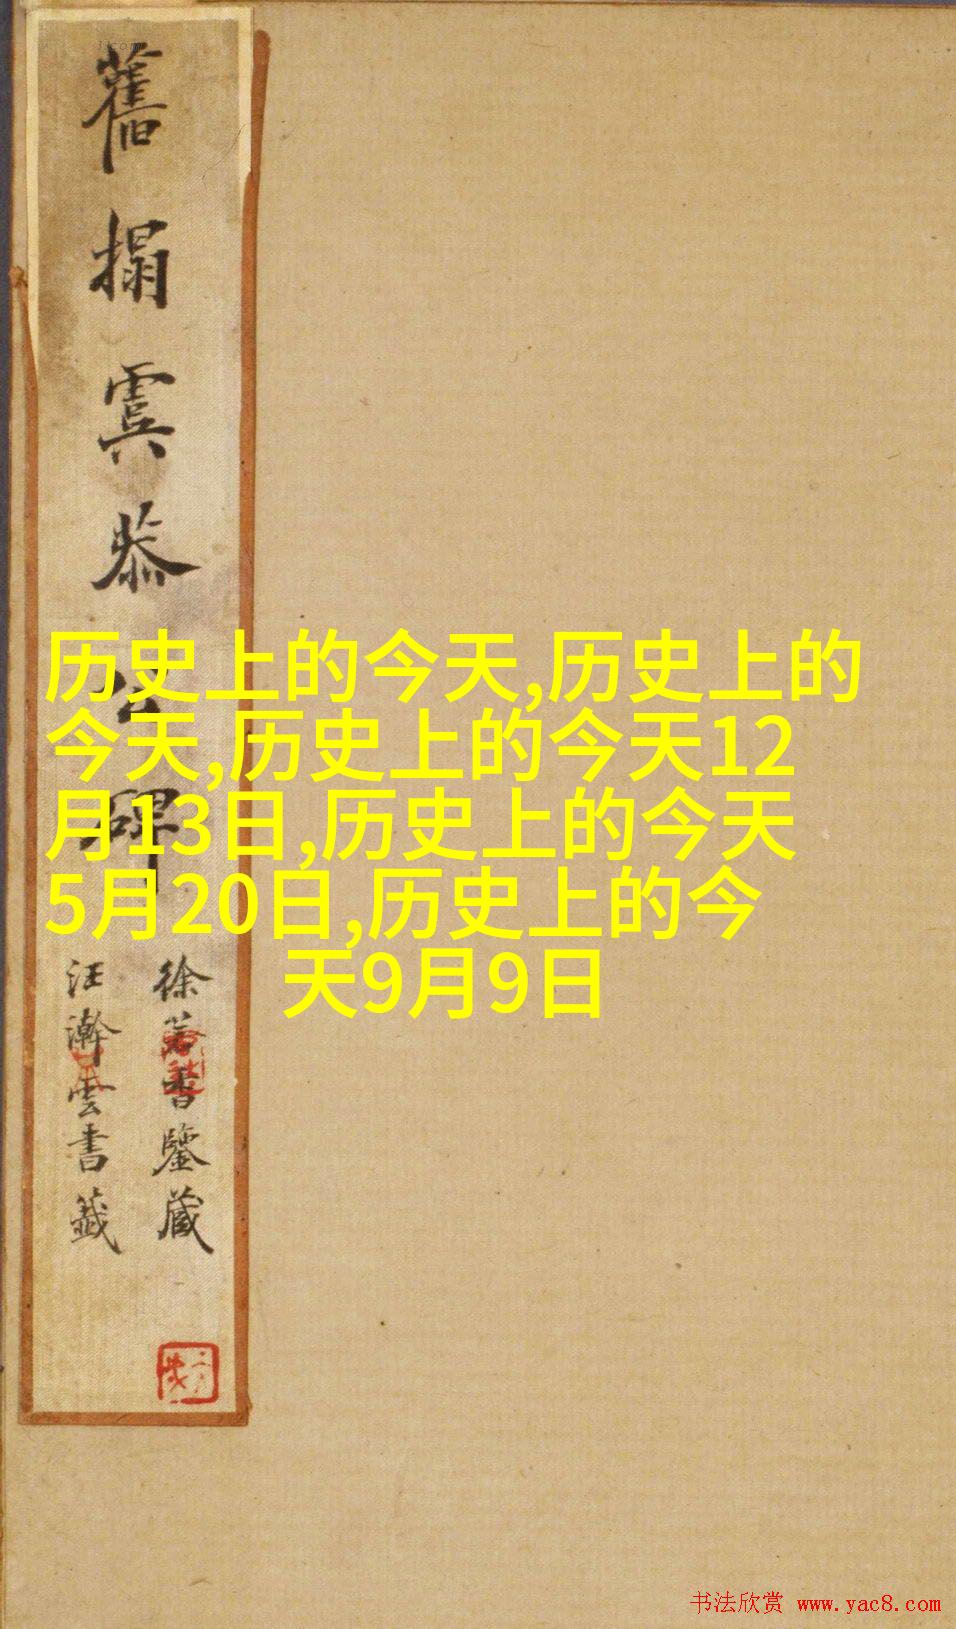 舊搨虞恭公碑
徐益書鑒藏
汪瀚雲書籤
历史上的今天,历史上的
今天,历史上的今天12
月13日,历史上的今天
5月20日,历史上的今
天9月9日
书法欣赏 www.yac8.com